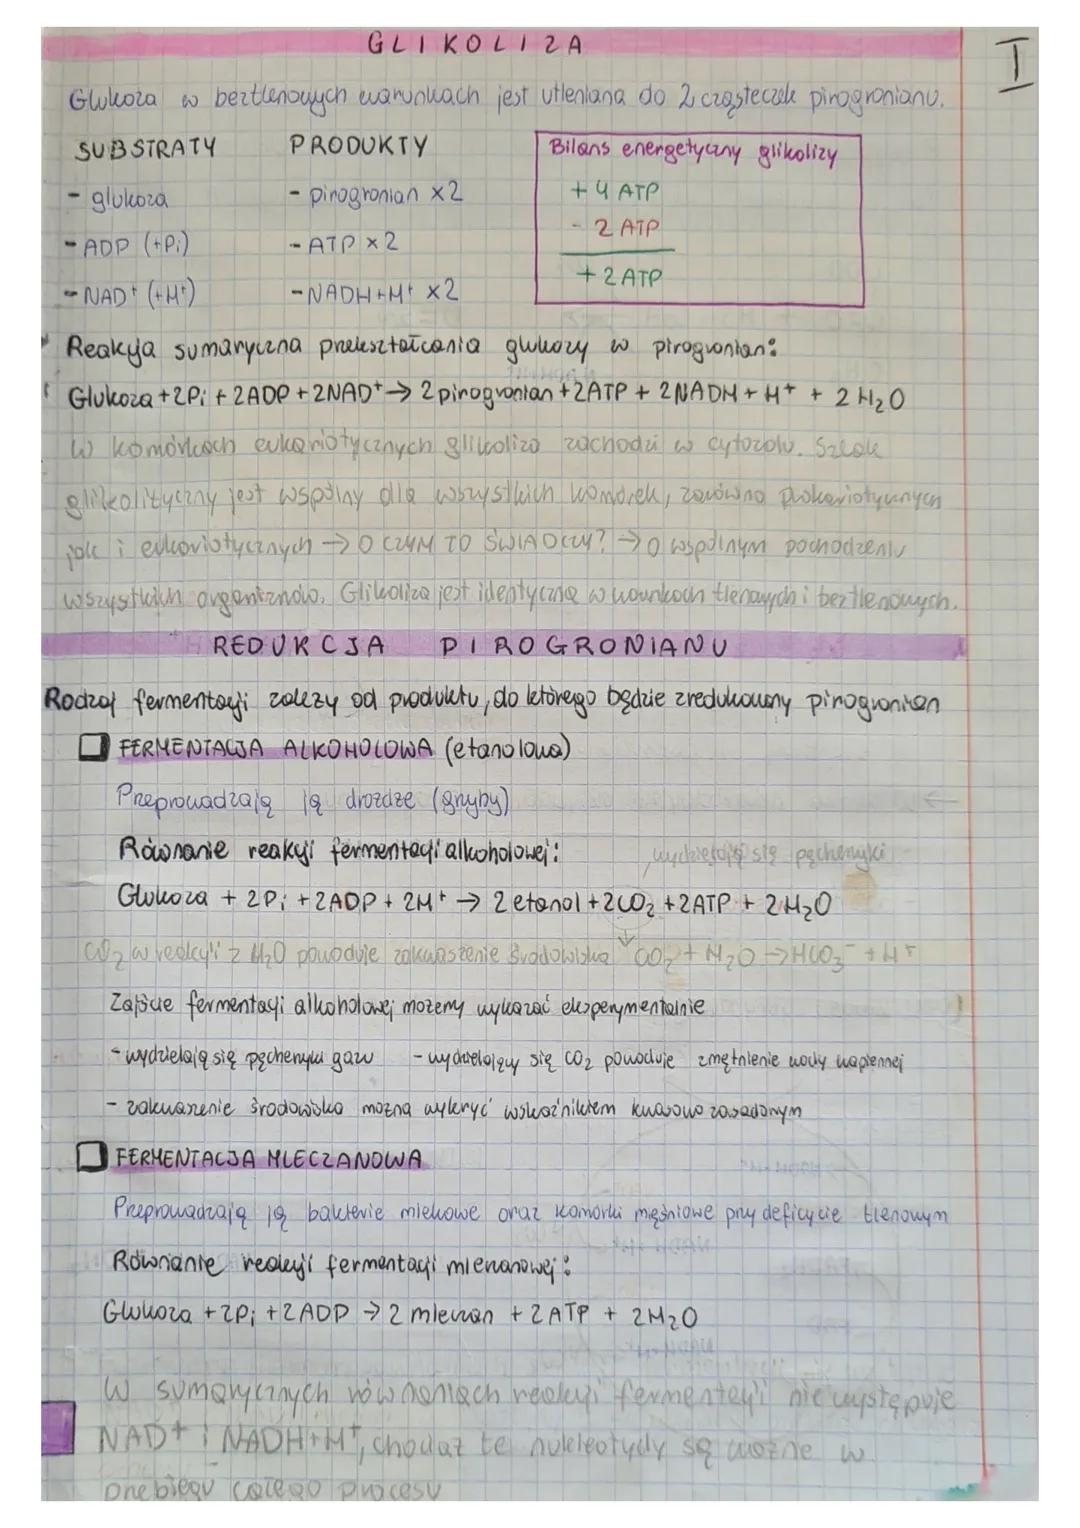 GLIKOLIZA
I
Glukoza w beztlenowych warunkach jest utleniana do 2 cząsteczek pirogronianu.
SUBSTRATY PRODUKTY
- glukoza - pirogronian x2
- ADP (+Pi) - ATP x2
- NAD+ (+H+) - NADH+H+ x2
Bilans energetyczny glikolizy
+ 4 ATP
- 2 ATP
+ 2 ATP
Reakcja sumaryczna przekształcania glukozy w pirogronian:
Glukoza + 2Pi + 2ADP + 2NAD+ → 2 pirogronian + 2ATP + 2NADH + H+ + 2 H2O
W komórkach eukariotycznych glikoliza zachodzi w cytozolu. Szlak
glikolityczny jest wspólny dla wszystkich komórek, zarówno prokariotycznych
jak i eukariotycznych → O CZYM TO ŚWIADCZY? → O wspólnym pochodzeniu
wszystkich organizmów. Glikoliza jest identyczna w warunkach tlenowych i beztlenowych.
REDUKCJA PIROGRONIANU
Rodzaj fermentacji zależy od produktu, do którego będzie zredukowany pirogronian
FERMENTACJA ALKOHOLOWA (etanolowa)
Przeprowadzają ją drożdże (grzyby)
Równanie reakcji fermentacji alkoholowej:
wydzielają się pęcherzyki
Glukoza + 2Pi + 2ADP + 2H+ → 2 etanol + 2CO2 + 2ATP + 2H2O
CO2 w reakcji z H2O powoduje zakwaszenie środowiska CO2 + H2O → HCO3- + H+
Zajście fermentacji alkoholowej możemy wykazać eksperymentalnie
- wydzielają się pęcherzyki gazu - wydzielający się CO2 powoduje zmętnienie wody wapiennej
- zakwaszenie środowiska można wykryć wskaźnikiem kwasowo zasadowym
FERMENTACJA MLECZANOWA
Przeprowadzają ją bakterie mlekowe oraz komórki mięśniowe przy deficycie tlenowym
Równanie reakcji fermentacji mleczanowej:
Glukoza + 2Pi + 2ADP → 2 mleczan + 2ATP + 2H2O
W sumarycznych równaniach reakcji fermentacji nie występuje
NAD+ i NADH+H+, chodaż te nukleotydy są ważne w
przebiegu całego procesu